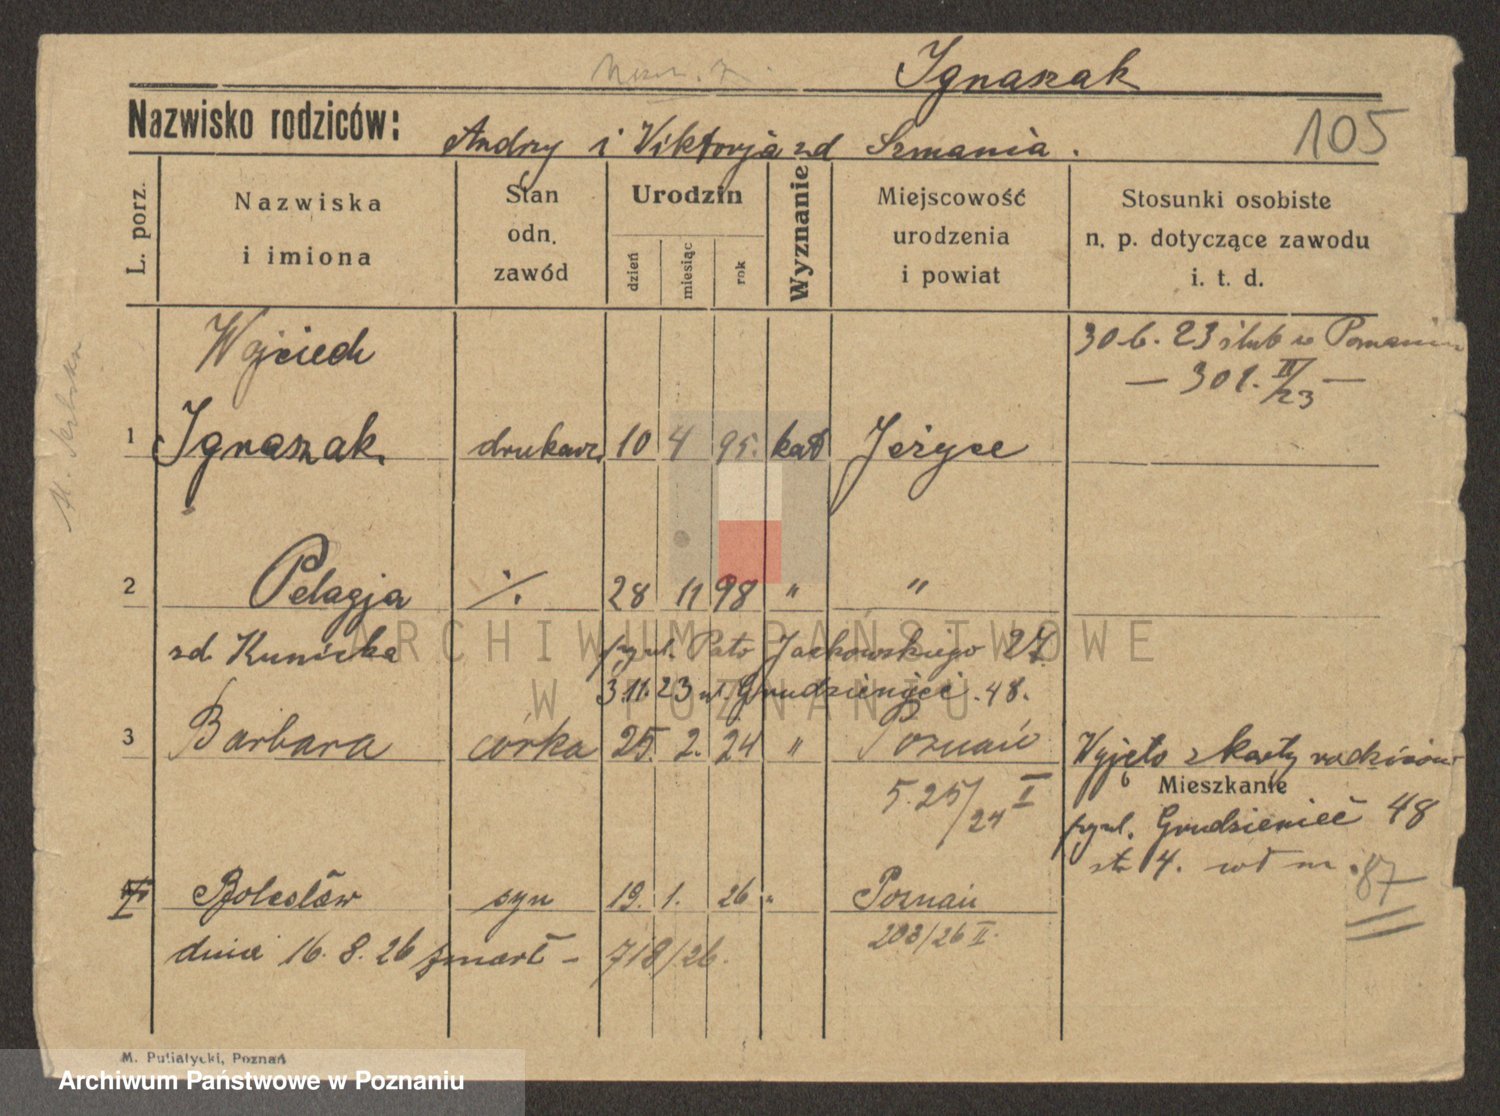 Ignaszak
Nazwisko rodziców:
Andrzy i Viktorja zd Szmania.
105
L. porz.
Nazwiska
i imiona
Stan
odn.
zawód
Urodzin
dzień
miesiąc
rok
Wyznanie
Miejscowość
urodzenia
i powiat
Stosunki osobiste
n. p. dotyczące zawodu
i. t. d.
Wojciech
30.6.23 ślub w Poznaniu
— 301. II/23 —
1 Ignaszak drukarz 10 4 95. kat Jeżyce
2 Pelagja ·/. 28 11 98 " "
zd Kunicka
ul. Pato Jackowskiego 27
3.11.23 ul. Grudzieniec. 48.
3 Barbara córka 25. 2. 24 " Poznań
5.25/24 I
Wyjęto z karty rodziców
Mieszkanie
ul. Grudzieniec 48
87
Bolesław syn 19. 1. 26 " Poznań
203/26 II.
dnia 16. 8. 26 zmarł – 718/26.
ARCHIWUM PAŃSTWOWE
W POZNANIU
M. Putiatycki, Poznań
Archiwum Państwowe w Poznaniu